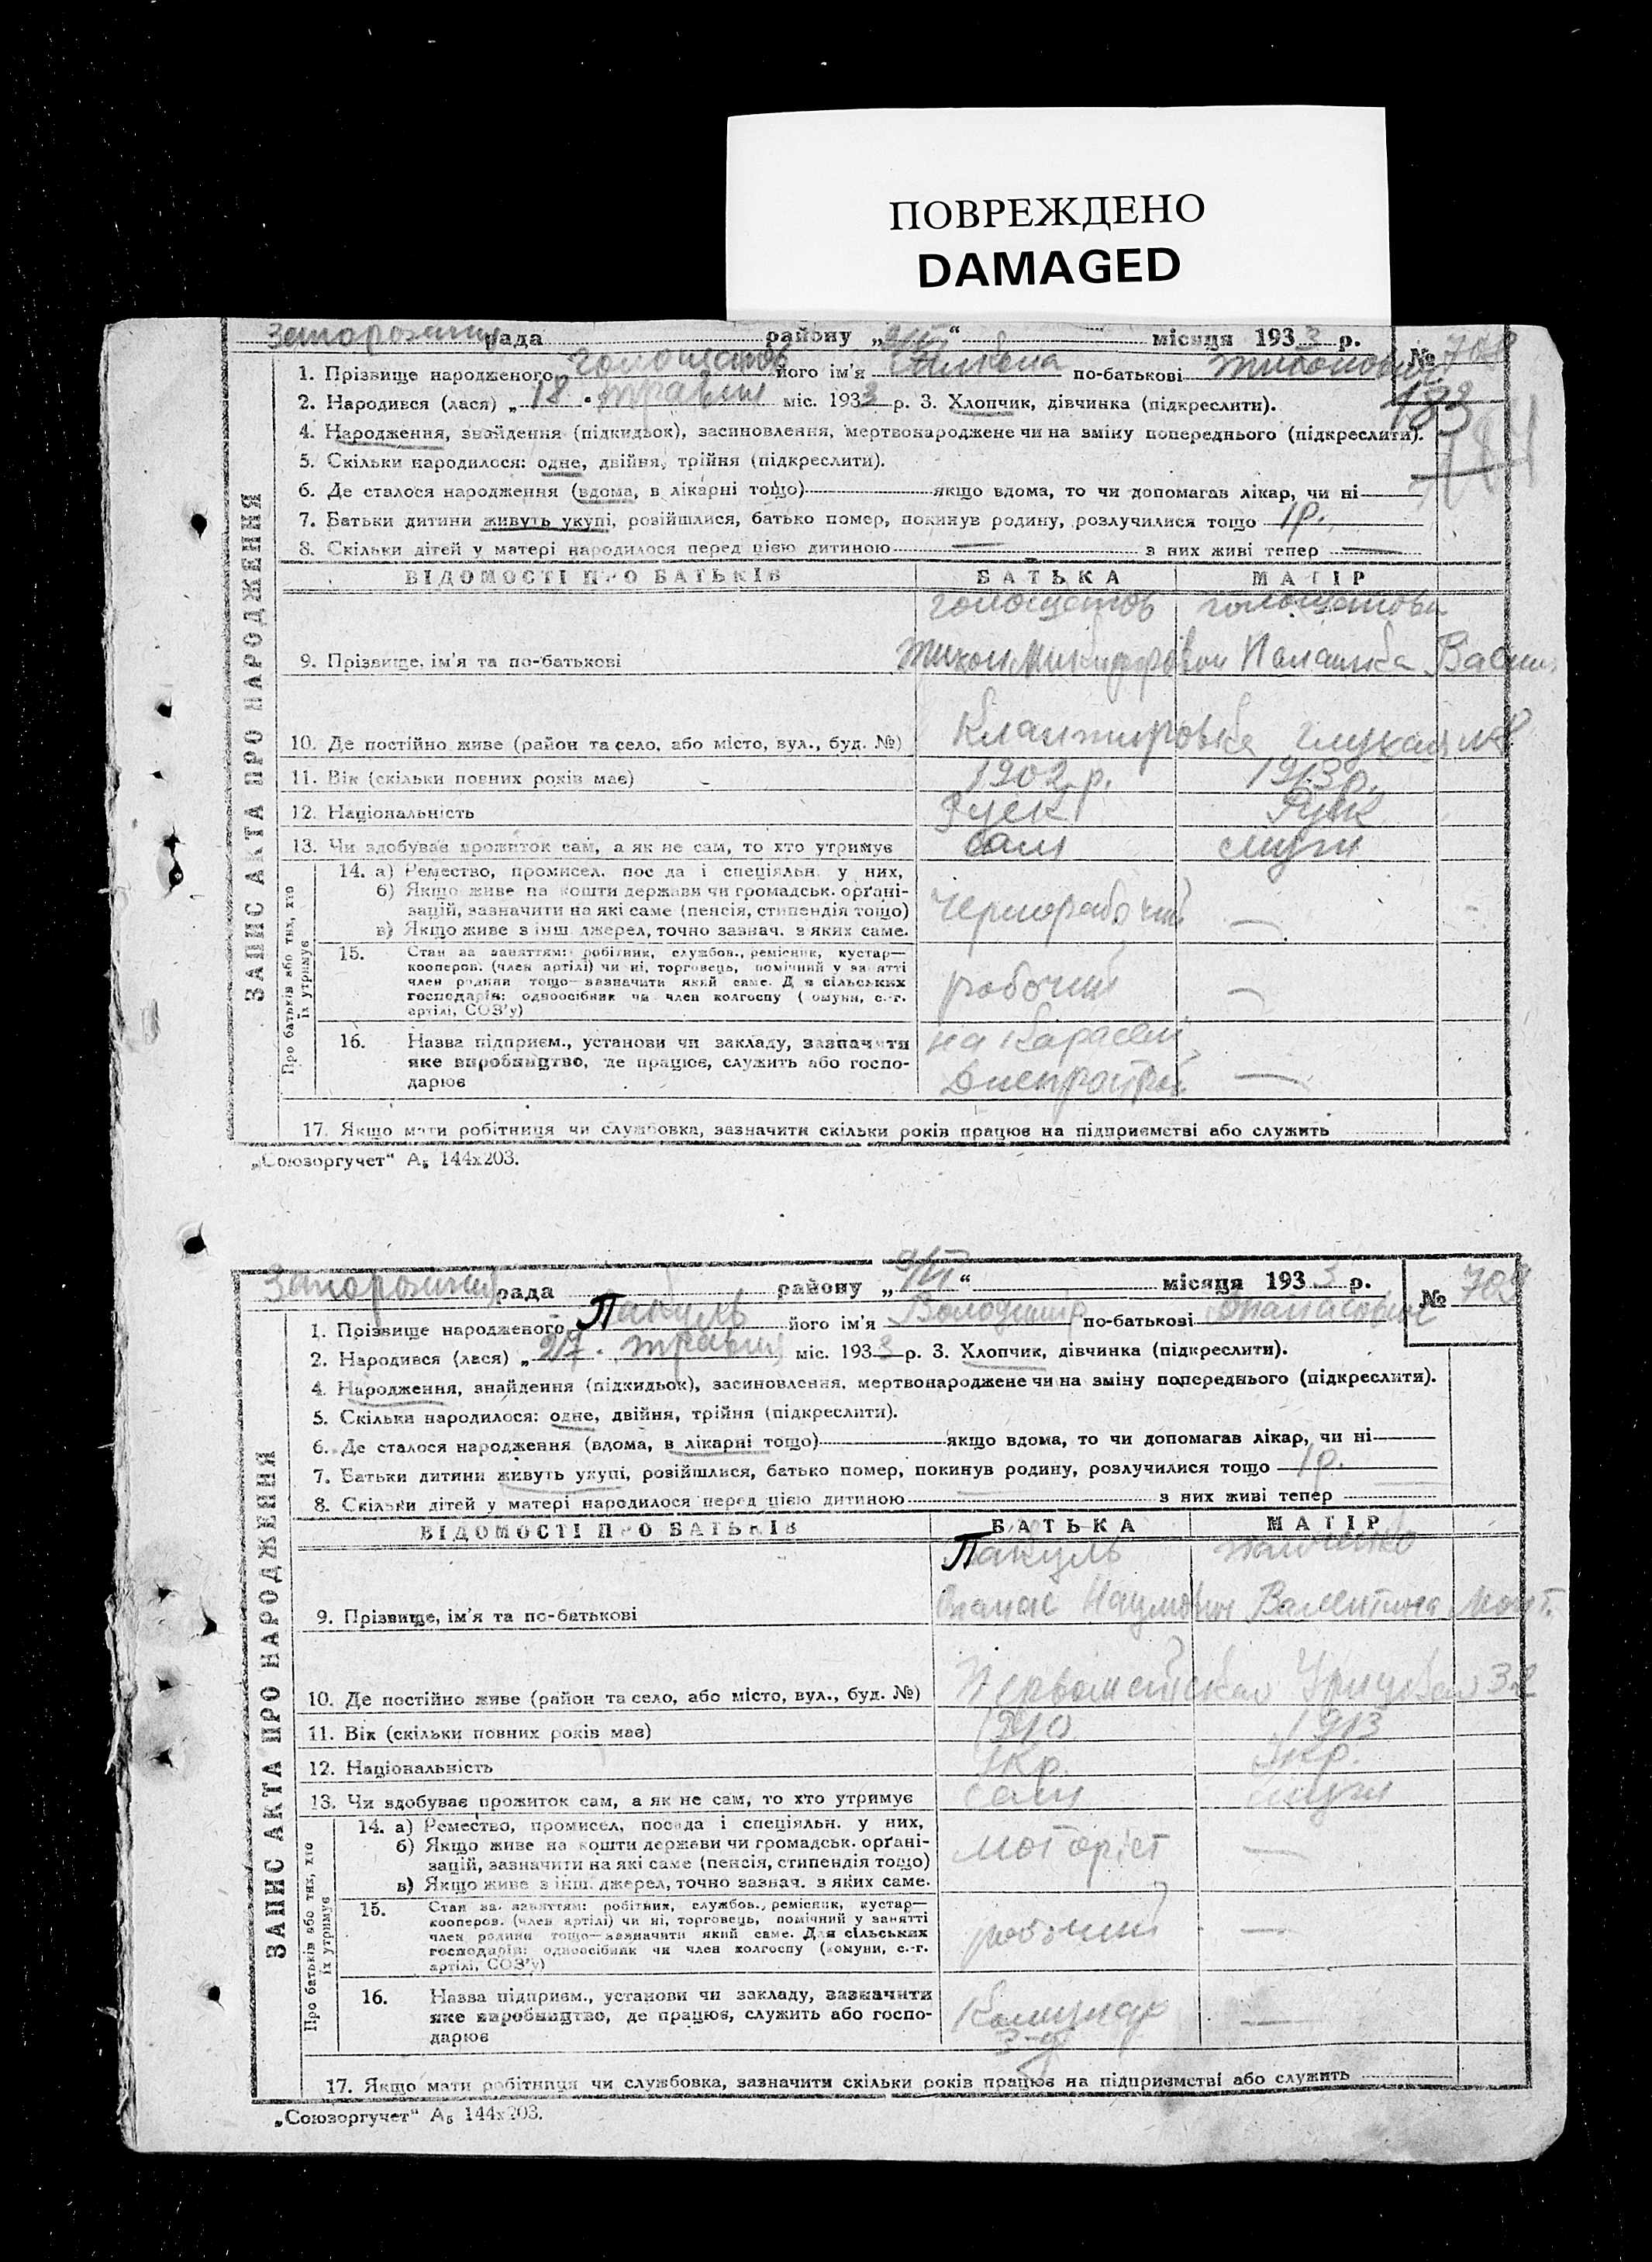 ПОВРЕЖДЕНО
DAMAGED
рада району „9/VI“ місяця 1933 р.
№ 708
1. Прізвище народженого його ім'я по-батькові
183
2. Народився (лася) „18“ травня міс. 1933 р. 3. Хлопчик, дівчинка (підкреслити).
4. Народження, знайдення (підкидьок), засиновлення, мертвонароджене чи на зміну попереднього (підкреслити).
5. Скільки народилося: одне, двійня, трійня (підкреслити).
6. Де сталося народження (вдома, в лікарні тощо) якщо вдома, то чи допомагав лікар, чи ні
7. Батьки дитини живуть укупі, розійшлися, батько помер, покинув родину, розлучилися тощо 1р.
8. Скільки дітей у матері народилося перед цією дитиною — з них живі тепер —
ЗАПИС АКТА ПРО НАРОДЖЕННЯ
ВІДОМОСТІ ПРО БАТЬКІВ БАТЬКА МАТІР
9. Прізвище, ім'я та по-батькові
10. Де постійно живе (район та село, або місто, вул., буд. №)
11. Вік (скільки повних років має) 1902 р. 1913 р.
12. Національність Руск
13. Чи здобував прожиток сам, а як не сам, то хто утримує сам
Про батьків або тих, хто їх утримує
14. а) Ремество, промисел, посада і спеціяльн. у них,
б) Якщо живе на кошти держави чи громадськ. орґані-
зацій, зазначити на які саме (пенсія, стипендія тощо) Чернорабочий —
в) Якщо живе з інш. джерел, точно зазнач. з яких саме.
15. Стан за заняттям: робітник, службов., ремісник, кустар—
кооперов. (член артілі) чи ні, торговець, помічний у занятті
член родини тощо—зазначити який саме. Для сільських рабочий —
господарів: одноосібник чи член колгоспу (комуни, с.-г.
артілі, СОЗ'у)
16. Назва підприєм., установи чи закладу, зазначити на
яке виробництво, де працює, служить або госпо-
дарює Днепрострой —
17. Якщо мати робітниця чи службовка, зазначити скільки років працює на підприємстві або служить
„Союзоргучет“ А₅ 144х203.
рада району „9/VI“ місяця 1933 р.
№ 709
1. Прізвище народженого Пакуль його ім'я Володимір по-батькові Опанасович
2. Народився (лася) „27“ травня міс. 1933 р. 3. Хлопчик, дівчинка (підкреслити).
4. Народження, знайдення (підкидьок), засиновлення, мертвонароджене чи на зміну попереднього (підкреслити).
5. Скільки народилося: одне, двійня, трійня (підкреслити).
6. Де сталося народження (вдома, в лікарні тощо) якщо вдома, то чи допомагав лікар, чи ні
7. Батьки дитини живуть укупі, розійшлися, батько помер, покинув родину, розлучилися тощо 1р.
8. Скільки дітей у матері народилося перед цією дитиною з них живі тепер
ЗАПИС АКТА ПРО НАРОДЖЕННЯ
ВІДОМОСТІ ПРО БАТЬКІВ БАТЬКА МАТІР
Пакуль
9. Прізвище, ім'я та по-батькові Опанас Наумович Валентина
10. Де постійно живе (район та село, або місто, вул., буд. №) 32
11. Вік (скільки повних років має) 1910 1913
12. Національність Укр. Укр.
13. Чи здобував прожиток сам, а як не сам, то хто утримує сам
Про батьків або тих, хто їх утримує
14. а) Ремество, промисел, посада і спеціяльн. у них,
б) Якщо живе на кошти держави чи громадськ. орґані- моторіст —
зацій, зазначити на які саме (пенсія, стипендія тощо)
в) Якщо живе з інш. джерел, точно зазнач. з яких саме.
15. Стан за заняттям: робітник, службов., ремісник, кустар—
кооперов. (член артілі) чи ні, торговець, помічний у занятті
член родини тощо—зазначити який саме. Для сільських рабочий —
господарів: одноосібник чи член колгоспу (комуни, с.-г.
артілі, СОЗ'у)
16. Назва підприєм., установи чи закладу, зазначити
яке виробництво, де працює, служить або госпо- —
дарює
17. Якщо мати робітниця чи службовка, зазначити скільки років працює на підприємстві або служить
„Союзоргучет“ А₅ 144х203.